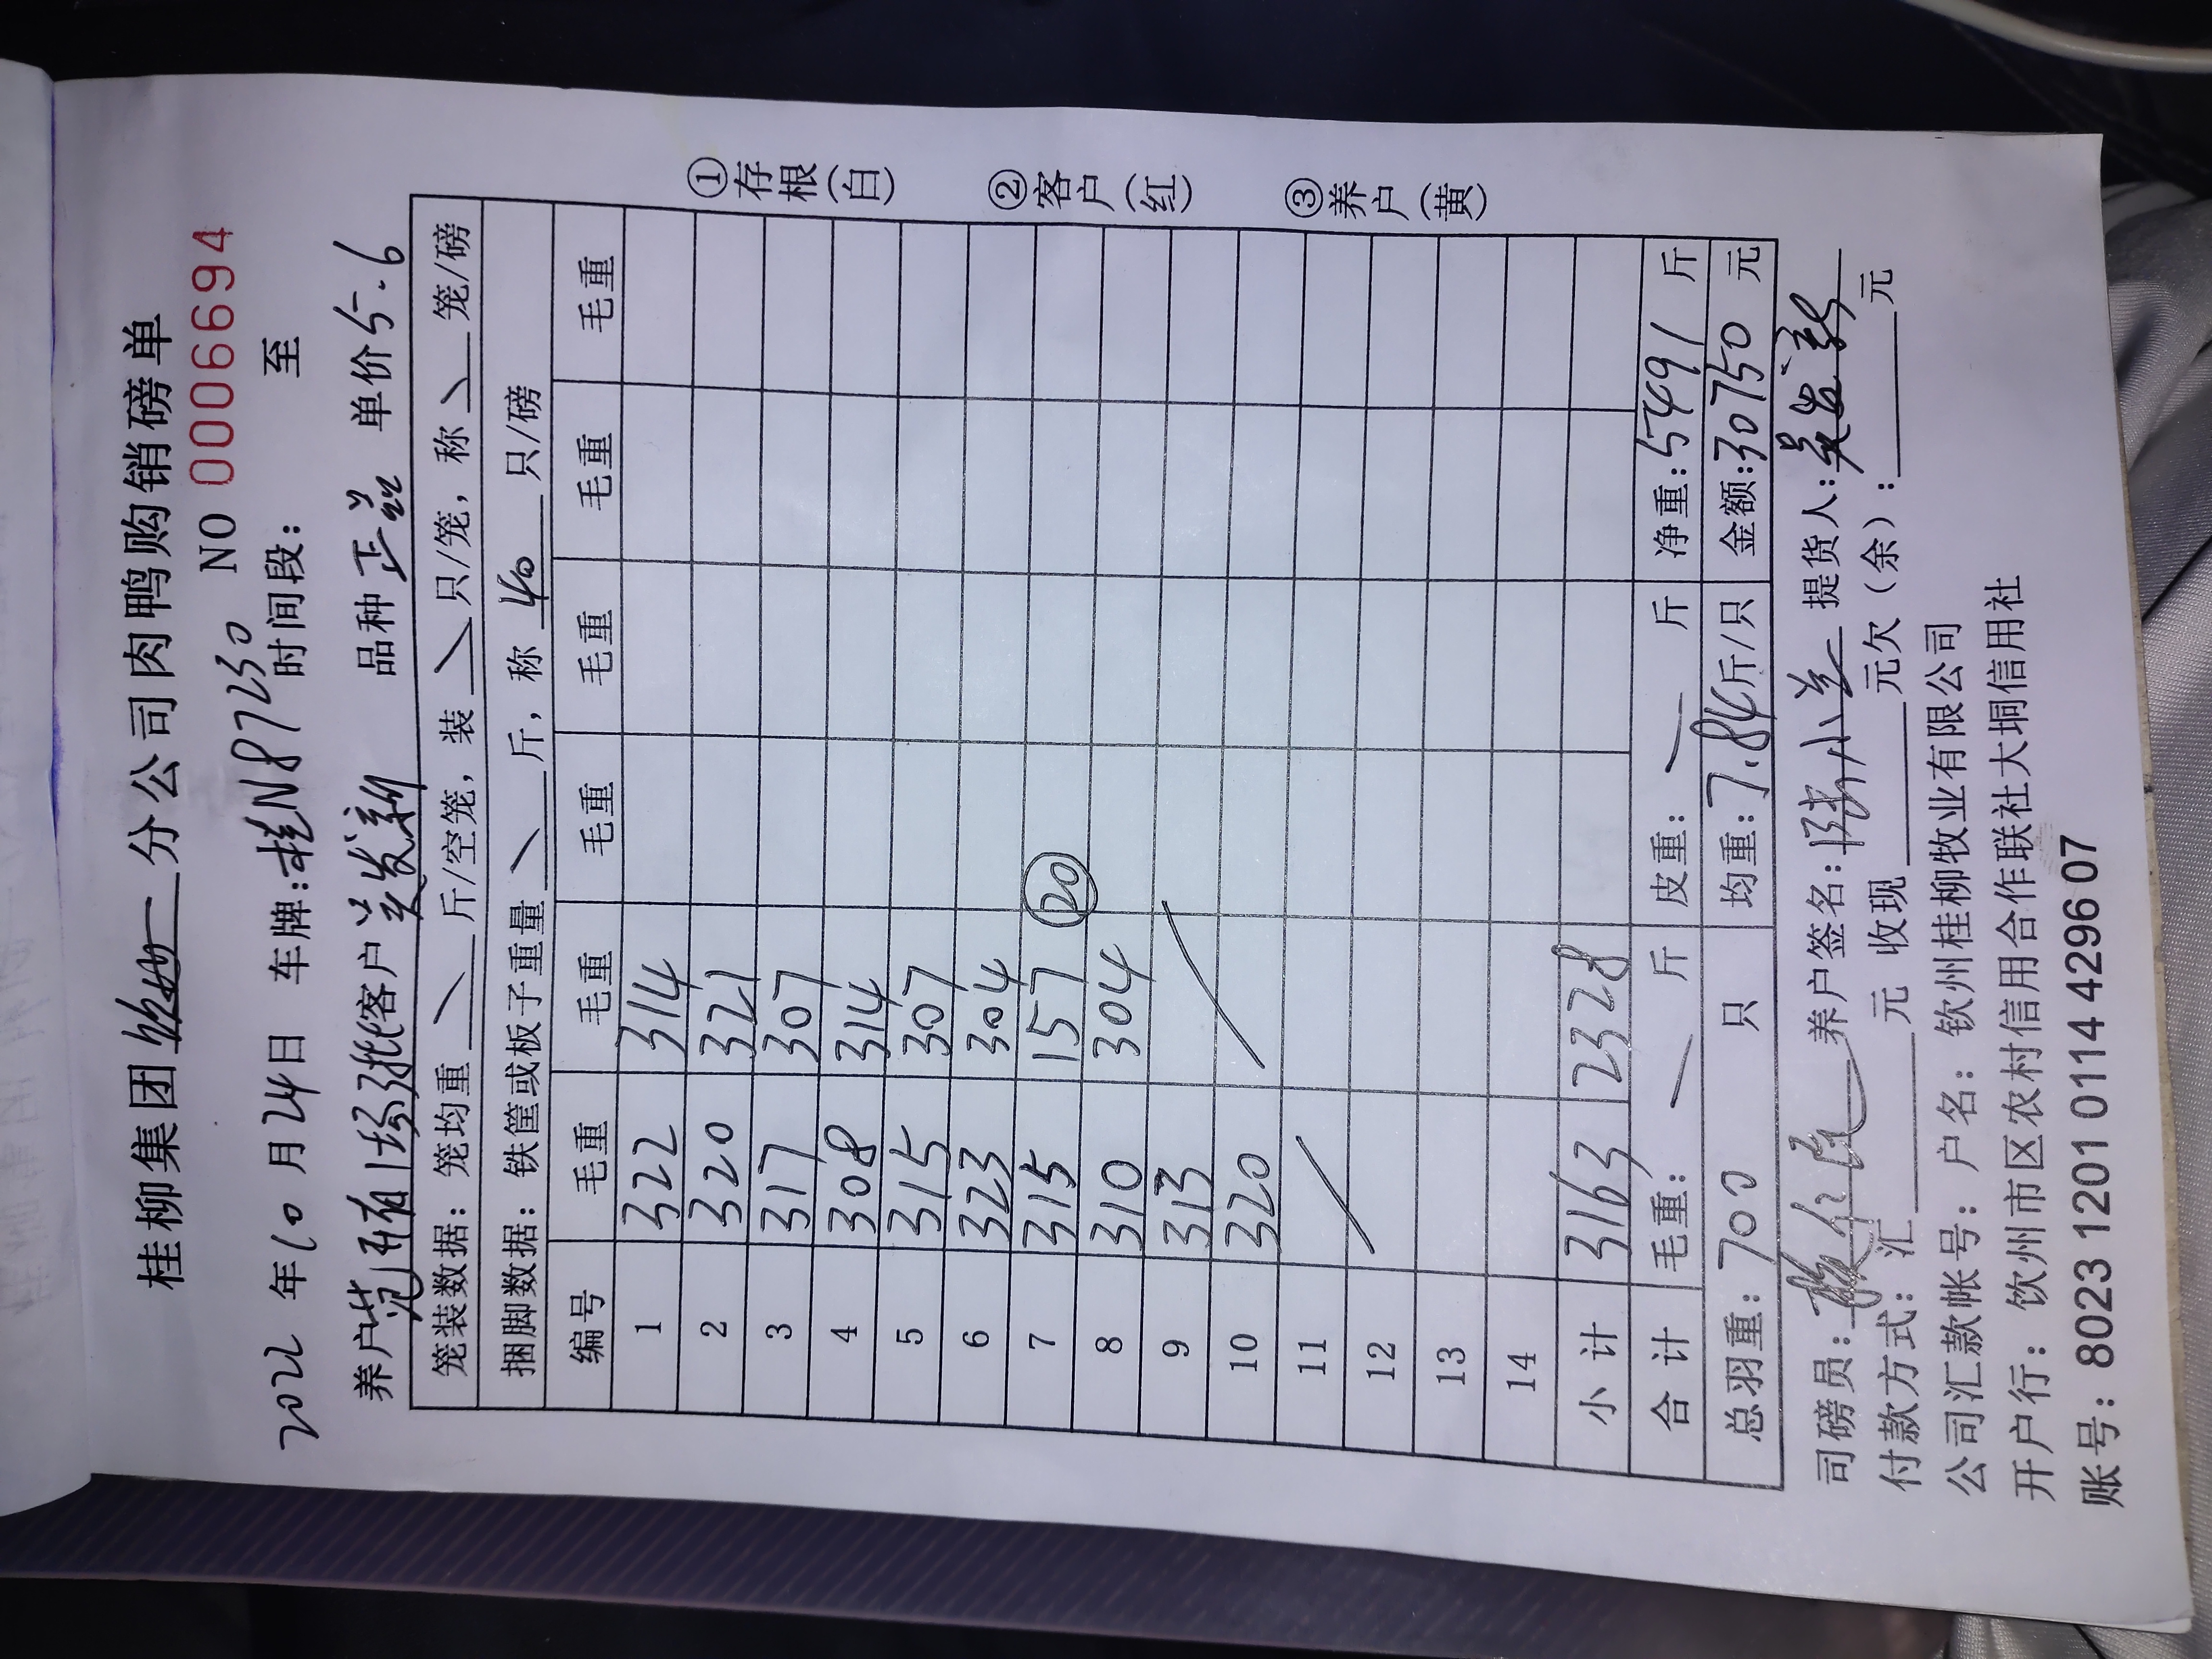 桂柳集团 分公司肉鸭购销磅单
NO 0006694
2022 年 10 月 24 日 车牌:桂N87230 时间段: 至
养户 范 有 场 客户 吴发新 品种 正 单价 5.6
笼装数据:笼均重 \ 斤/空笼,装 \ 只/笼,称 \ 笼/磅
捆脚数据:铁筐或板子重量 \ 斤,称 40 只/磅
编号 毛重 毛重 毛重 毛重 毛重 毛重
1 322 314
2 320 321
3 317 307
4 308 314
5 315 307
6 323 304
7 315 157 ⑳
8 310 304
9 313
10 320
11
12
13
14
小 计 3163 2328
合 计 毛重: \ 斤 皮重: \ 斤 净重:5491 斤
总羽重:700 只 均重:7.84斤/只 金额:30750 元
①存根(白)
②客户(红)
③养户(黄)
司磅员: 养户签名: 提货人:吴发新
付款方式:汇 元 收现 元欠(余): 元
公司汇款帐号:户名:钦州桂柳牧业有限公司
开户行:钦州市区农村信用合作联社大垌信用社
账号:8023 1201 0114 4296 07